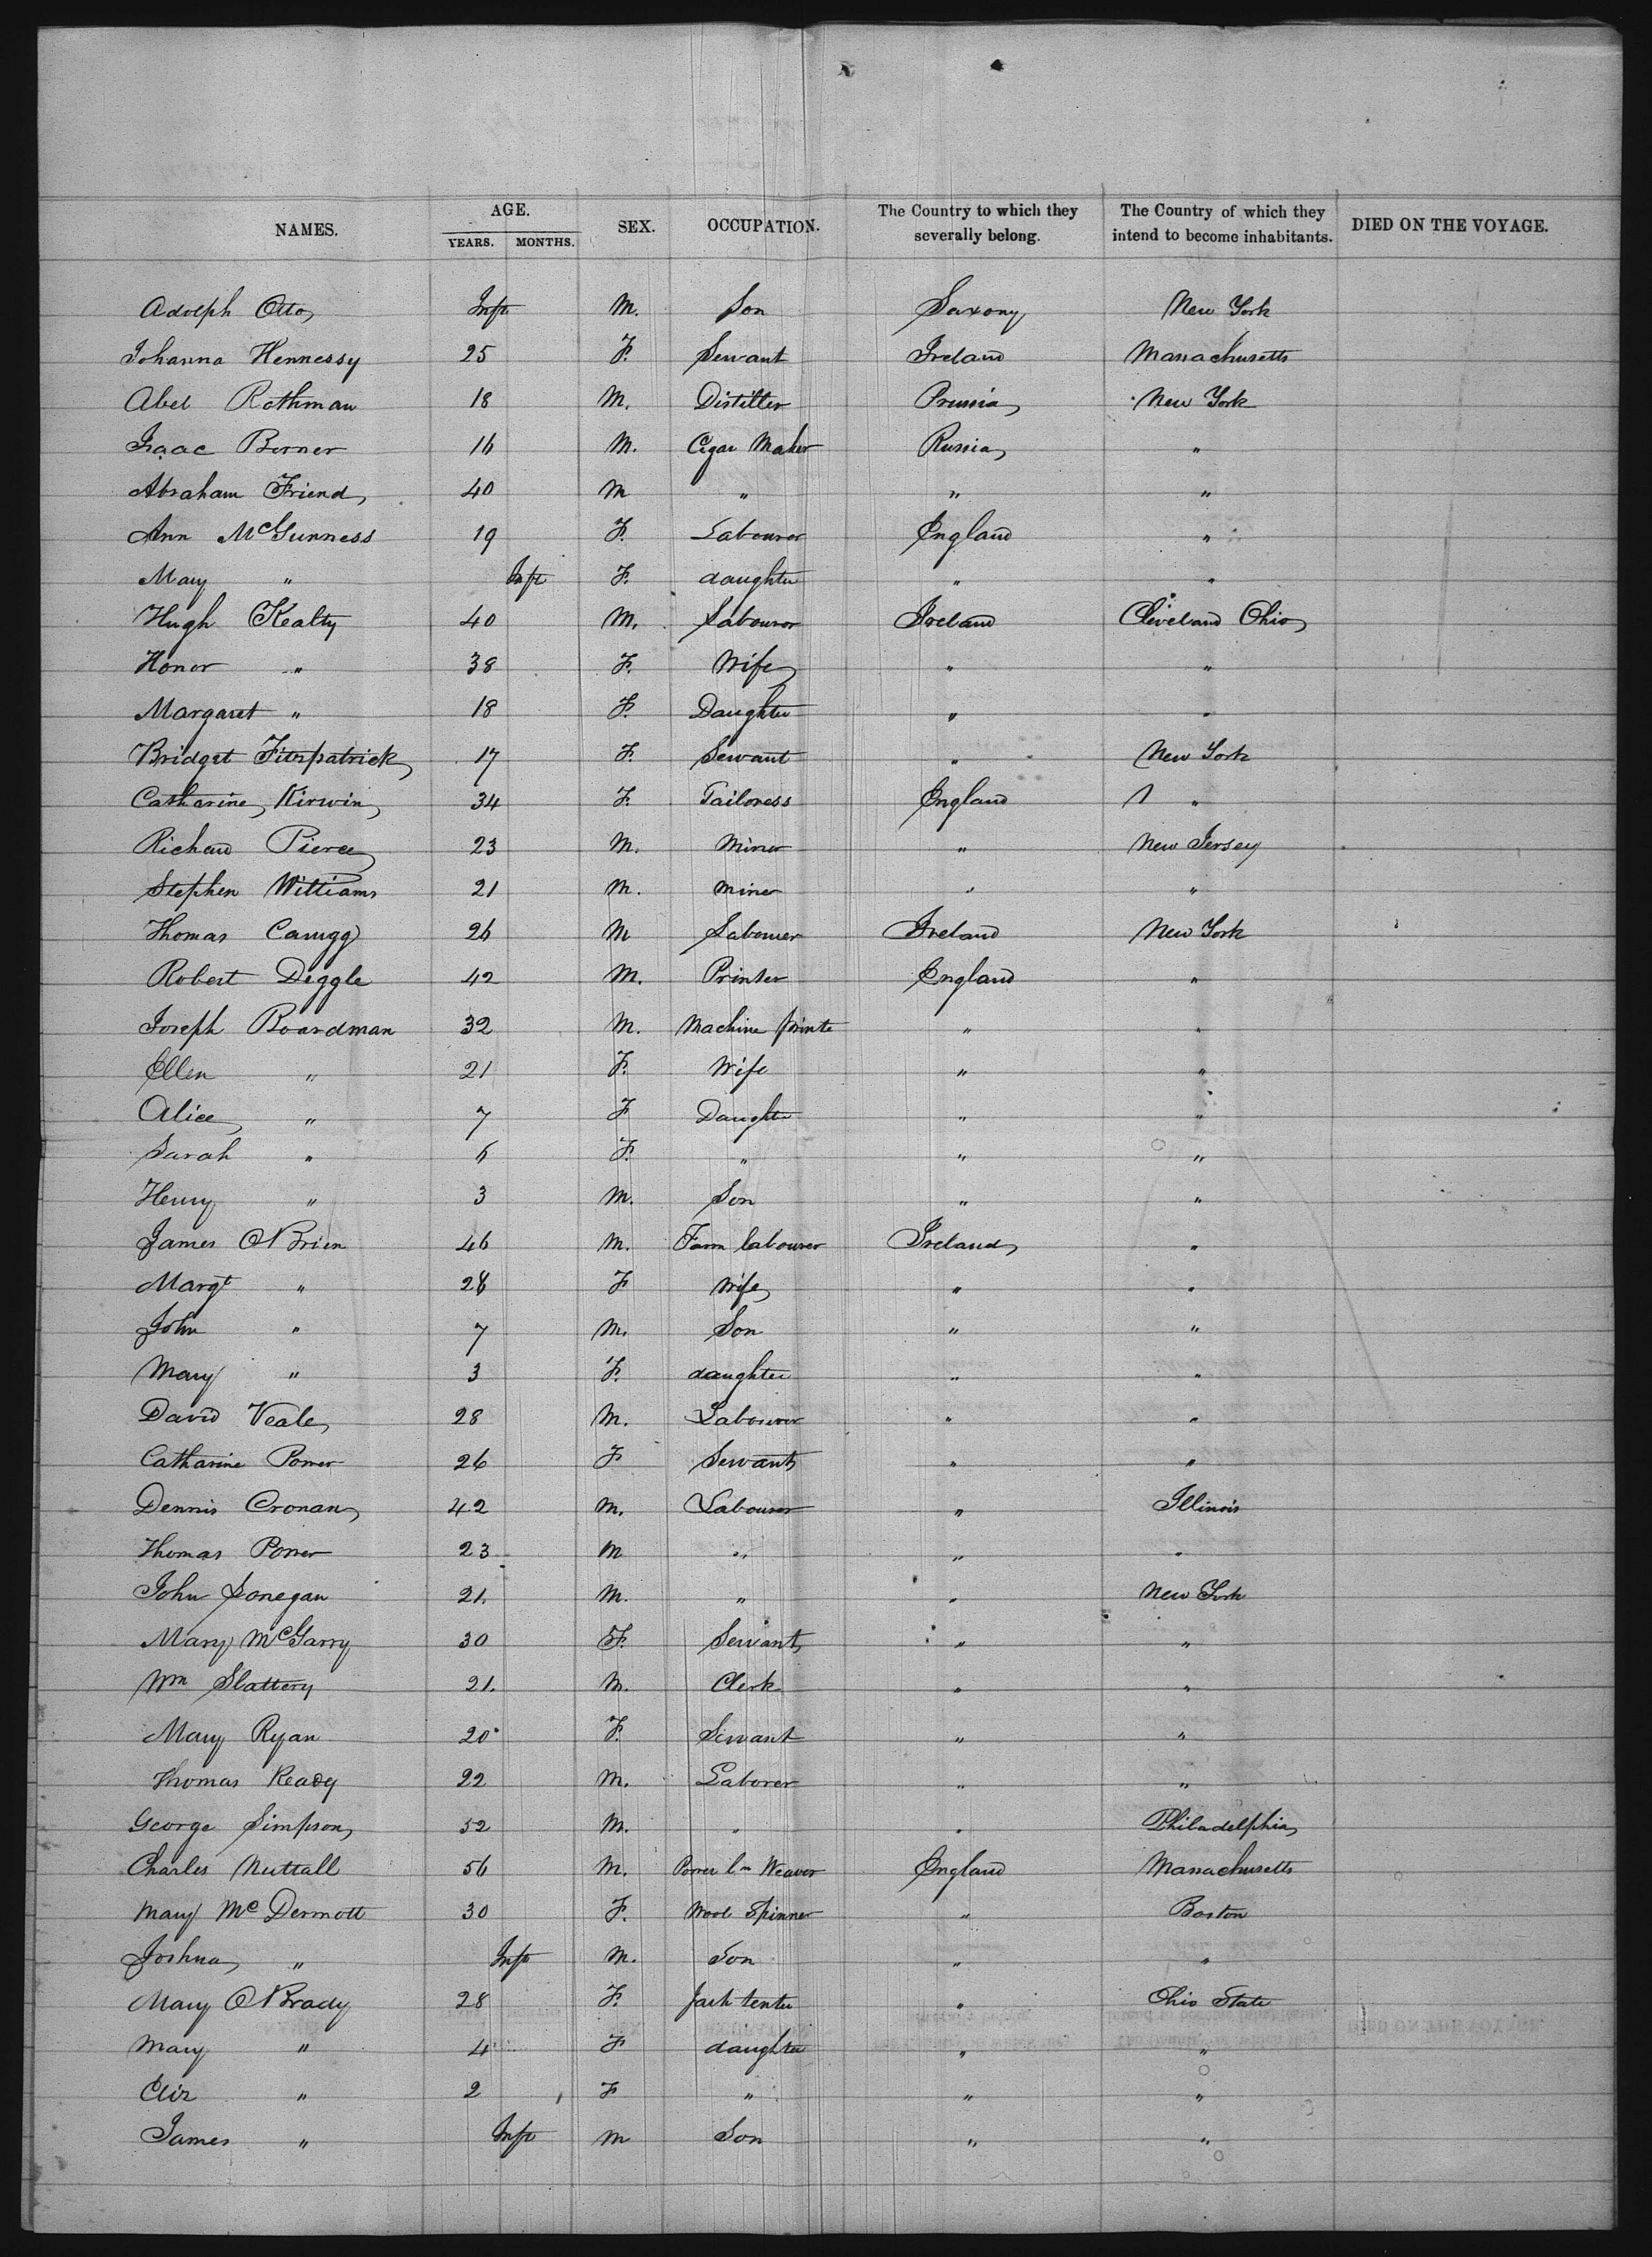 NAMES. AGE. YEARS. MONTHS. SEX. OCCUPATION. The Country to which they severally belong. The Country of which they intend to become inhabitants. DIED ON THE VOYAGE.
Adolph Otto Inft M. Son Saxony New York
Johanna Hennessy 25 F. Servant Ireland Massachusetts
Abel Rothman 18 M. Distiller Prussia New York
Isaac Berner 16 M. Cigar Maker Russia "
Abraham Friend 40 M " " "
Ann McGunness 19 F. Labourer England "
Mary " Inft F. daughter " "
Hugh Kealty 40 M. Labourer Ireland Cleveland Ohio
Honor " 38 F. Wife " "
Margaret " 18 F. Daughter " "
Bridget Fitzpatrick 17 F. Servant " New York
Catharine Kirwin 34 F. Tailoress England "
Richard Pierce 23 M. Miner " New Jersey
Stephen Williams 21 M. Miner " "
Thomas 26 M Labourer Ireland New York
Robert Deggle 42 M. Printer England "
Joseph Boardman 32 M. Machine printe " "
Ellen " 21 F. Wife " "
Alice " 7 F Daughter " "
Sarah " 6 F. " " "
Henry " 3 M. Son " "
James O'Brien 46 M. Farm labourer Ireland "
Margt " 28 F Wife " "
John " 7 M. Son " "
Mary " 3 F. daughter " "
David Veale 28 M. Labourer " "
Catharine Power 26 F Servant " "
Dennis Cronan 42 M. Labourer " Illinois
Thomas Power 23 M " " "
John Donegan 21. M. " " New York
Mary McGarry 30 F. Servant " "
Wm Slattery 21. M. Clerk " "
Mary Ryan 20 F. Servant " "
Thomas Ready 22 M. Laborer " "
George Simpson 52 M. " " Philadelphia
Charles Nuttall 56 M. Power lm Weaver England Massachusetts
Mary McDermott 30 F. Wool Spinner " Boston
Joshua " Inft M. Son " "
Mary O'Brady 28 F. Jack tenter " Ohio State
Mary " 4 F daughter " "
Eliz " 2 F " " "
James " Inft M Son " "